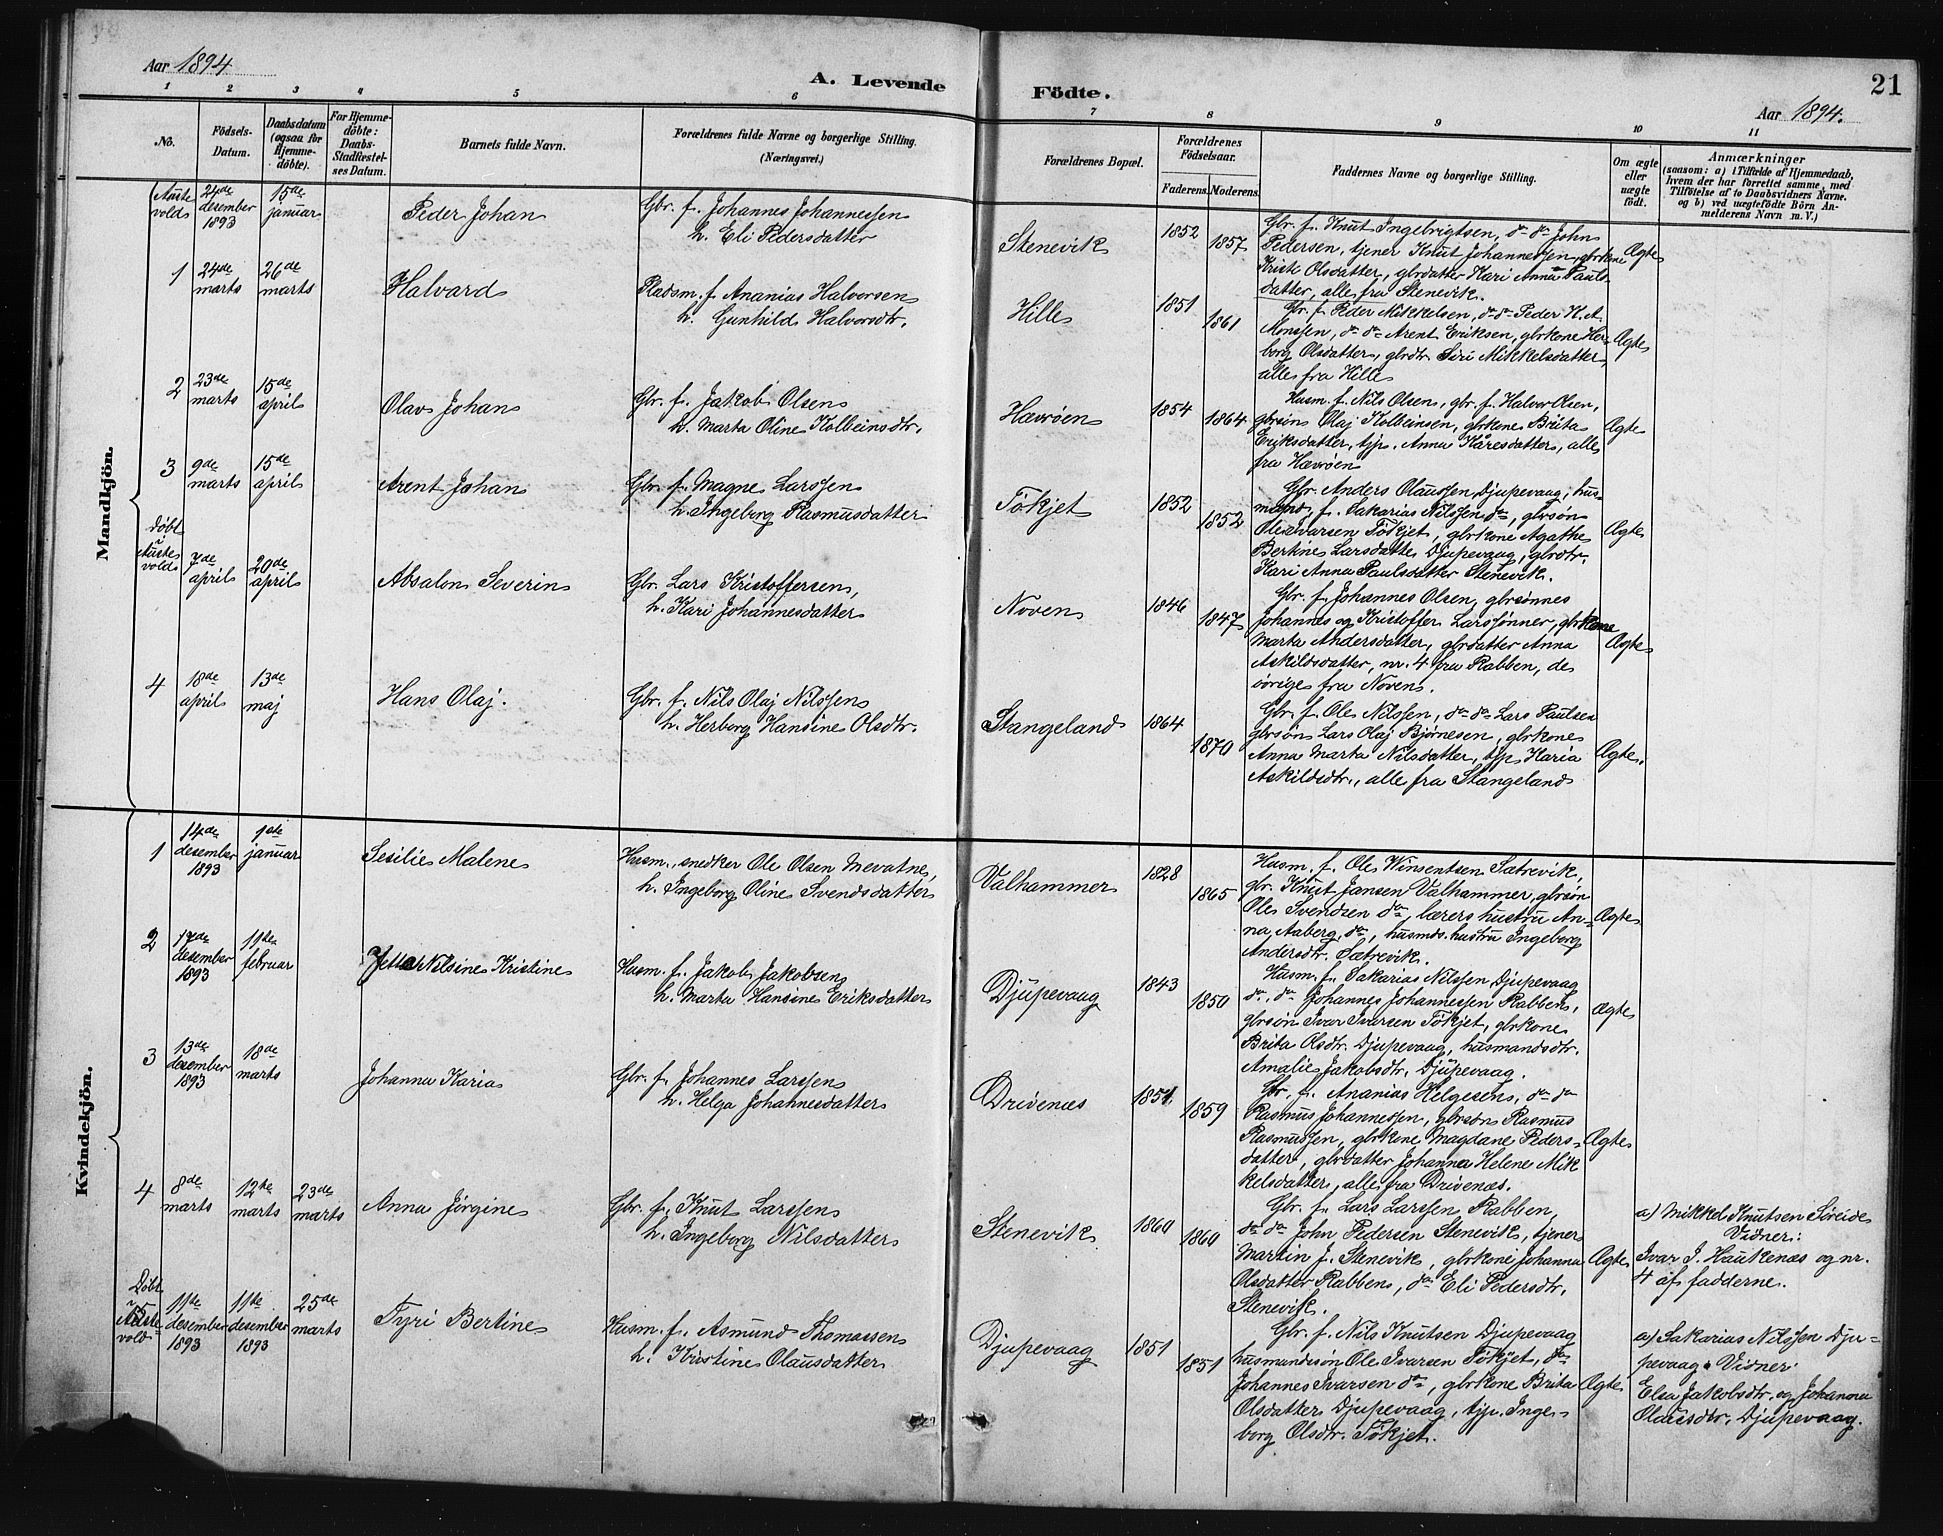 Aar 1894
A. Levende Födte.
Aar 1894.
21
1 2 3 4 5 6 7 8 9 10 11
No.
Födsels-
Datum.
Daabsdatum
(ogsaa for
Hjemme-
döbte).
For Hjemme-
döbte:
Daabs-
Stadfæstel-
ses Datum.
Barnets fulde Navn.
Forældrenes fulde Navne og borgerlige Stilling.
(Næringsvei.)
Forældrenes Bopæl.
Forældrenes
Födselsaar.
Faderens. Moderens.
Faddernes Navne og borgerlige Stilling.
Om ægte
eller
uægte
födt.
Anmærkninger
(saasom: a) i Tilfælde af Hjemmedaab,
hvem der har forrettet samme, med
Tilföielse af to Daabsvidners Navne.
og b) ved uægtefödte Börn An-
melderens Navn m. V.)
Mandkjön.
(Auste
volds
24de
desember
1893
15de
januar
Peder Johan
Gbr. f. Johannes Johannessen
h. Eli Pedersdatter
Stenevik
1852
1857
Gbr. f. Knut Ingebrigtsen, do do John
Pedersen, tjener Knut Johannessen, gbrkone
Kristi Olsdatter, gbrdatter Kari Anna Pauls-
datter, alle fra Stenevik.
Ægte
1
24de
marts
26de
marts
Halvard
Pladsm. f. Ananias Halvorsen
h. Gunhild Halvorsdtr.
Hille
1851
1861
Gbr. f. Peder Mikkelsen, do do Peder K. A.
Monssen, do do Arent Eriksen, gbrkone Her-
borg Olsdatter, gbrdtr Siri Mikkelsdatter,
alle fra Hille
Ægte
2
23de
marts
15de
april
Olav Johan
Gbr. f. Jakob Olsen
h. Marta Oline Kolbeinsdtr.
Hævrøen
1854
1864
Husm. f. Nils Olsen, gbr. f. Halvor Olsen,
gbrsøn Olaj Kolbeinsen, gbrkone Brita
Eriksdatter, tjp. Anna Kåresdatter, alle
fra Hævrøen
Ægte
3
9de
marts
15de
april
Arent Johan
Gbr. f. Magne Larssen
h. Ingeborg Rasmusdatter
Tökjet
1852
1852
Gbr. Anders Olaussen Djupevaag, hus-
mand f. Sakarias Nilssen do, gbrsøn
Ole Ivarsen Tökjet, gbrkone Agathe
Bertine Larsdatter Djupevaag, gbrdtr.
Kari Anna Paulsdatter Stenevik.
Ægte
døbt
i
Auste
volds
7de
april
29de
april
Absalon Severin
Gbr. Lars Kristoffersen,
h. Kari Johannesdatter
Noven
1846
1847
Gbr. f. Johannes Olsen, gbrsønnes
Johannes og Kristoffer Larssønner, gbrkone
Marta Andersdatter, gbrdatter Anna
Askildsdatter, nr. 4 fra Rabben, de
øvrige fra Noven.
Ægte
4
18de
april
13de
maj
Hans Olaj.
Gbr. f. Nils Olaj Nilssen
h. Herborg Hansine Olsdtr.
Stangeland
1864
1870
Gbr. f. Ole Nilssen, do do Lars Paulsen
gbrsøn Lars Olaj Bjørnesen, gbrkone
Anna Marta Nilsdatter, tjp. Karia
Askildsdtr., alle fra Stangeland
Ægte.
Kvindekjön.
1
14de
desember
1893
1ste
januar
Sesilie Malene
Husm., snedker Ole Olsen Mevatne,
h. Ingeborg Oline Svendsdatter
Valhammer
1828
1865
Husm. f. Ole Winsentsen Sætrevik,
gbr. Knut Jansen Valhammer, gbrsøn
Ole Svendsen do, lærers hustru An-
na Aaberg do, husmds. hustru Ingeborg
Andersdtr. Sætrevik.
Ægte
2
17de
desember
1893
11te
februar
Nilsine Kristine
Husm. f. Jakob Jakobsen
h. Marta Hansine Eriksdatter
Djupevaag
1843
1850
Husm. f. Sakarias Nilssen Djupevaag
do. do Johannes Johannessen Rabben,
gbrsøn Ivar Ivarsen Tökjet, gbrkone
Brita Olsdtr. Djupevaag, husmandsdtr.
Amalie Jakobsdtr. Djupevaag.
Ægte
3
13de
desember
1893
18de
marts
Johanna Karia
Gbr. f. Johannes Larssen
h. Helga Johannesdatter
Drivenæs
1851
1859
Gbr. f. Ananias Helgesen, do do
Rasmus Johannessen, gbrsøn Rasmus
Rasmussen, gbrkone Magdane Peders-
datter, gbrdatter Johanna Helene Mik
kelsdatter, alle fra Drivenæs.
Ægte
4
8de
marts
12te
marts
23de
marts
Anna Jørgine
Gbr. f. Knut Larssen
h. Ingeborg Nilsdatter
Stenevik
1860
1860
Gbr. f. Lars Larssen Rabben,
do do John Pedersen Stenevik, tjener
Martin J. Stenevik, gbrkone Johanna
Olsdatter Rabben, do Eli Pedersdtr.
Stenevik.
Ægte
a) Mikkel Knutsen Søreide
Vidner:
Ivar J. Haukenæs og nr.
4 af fadderne.
Døbt
i
Auste-
vold
11te
desember
1893
11te
desember
1893
25de
marts
Tyri Bertine
Husm. f. Asmund Thomassen
h. Kirstine Olausdatter
Djupevaag
1851
1851
Gbr. f. Nils Knutsen Djupevaag
husmandssøn Ole Ivarsen Tökjet, do
Johannes Ivarsen do, gbrkone Brita
Olsdatter Djupevaag, tjp. Inge-
borg Olsdtr. Tökjet.
Ægte
a) Sakarias Nilssen Dju-
pevaag. Vidner:
Elsa Jakobsdtr. og Johanna
Olausdtr. Djupevaag.